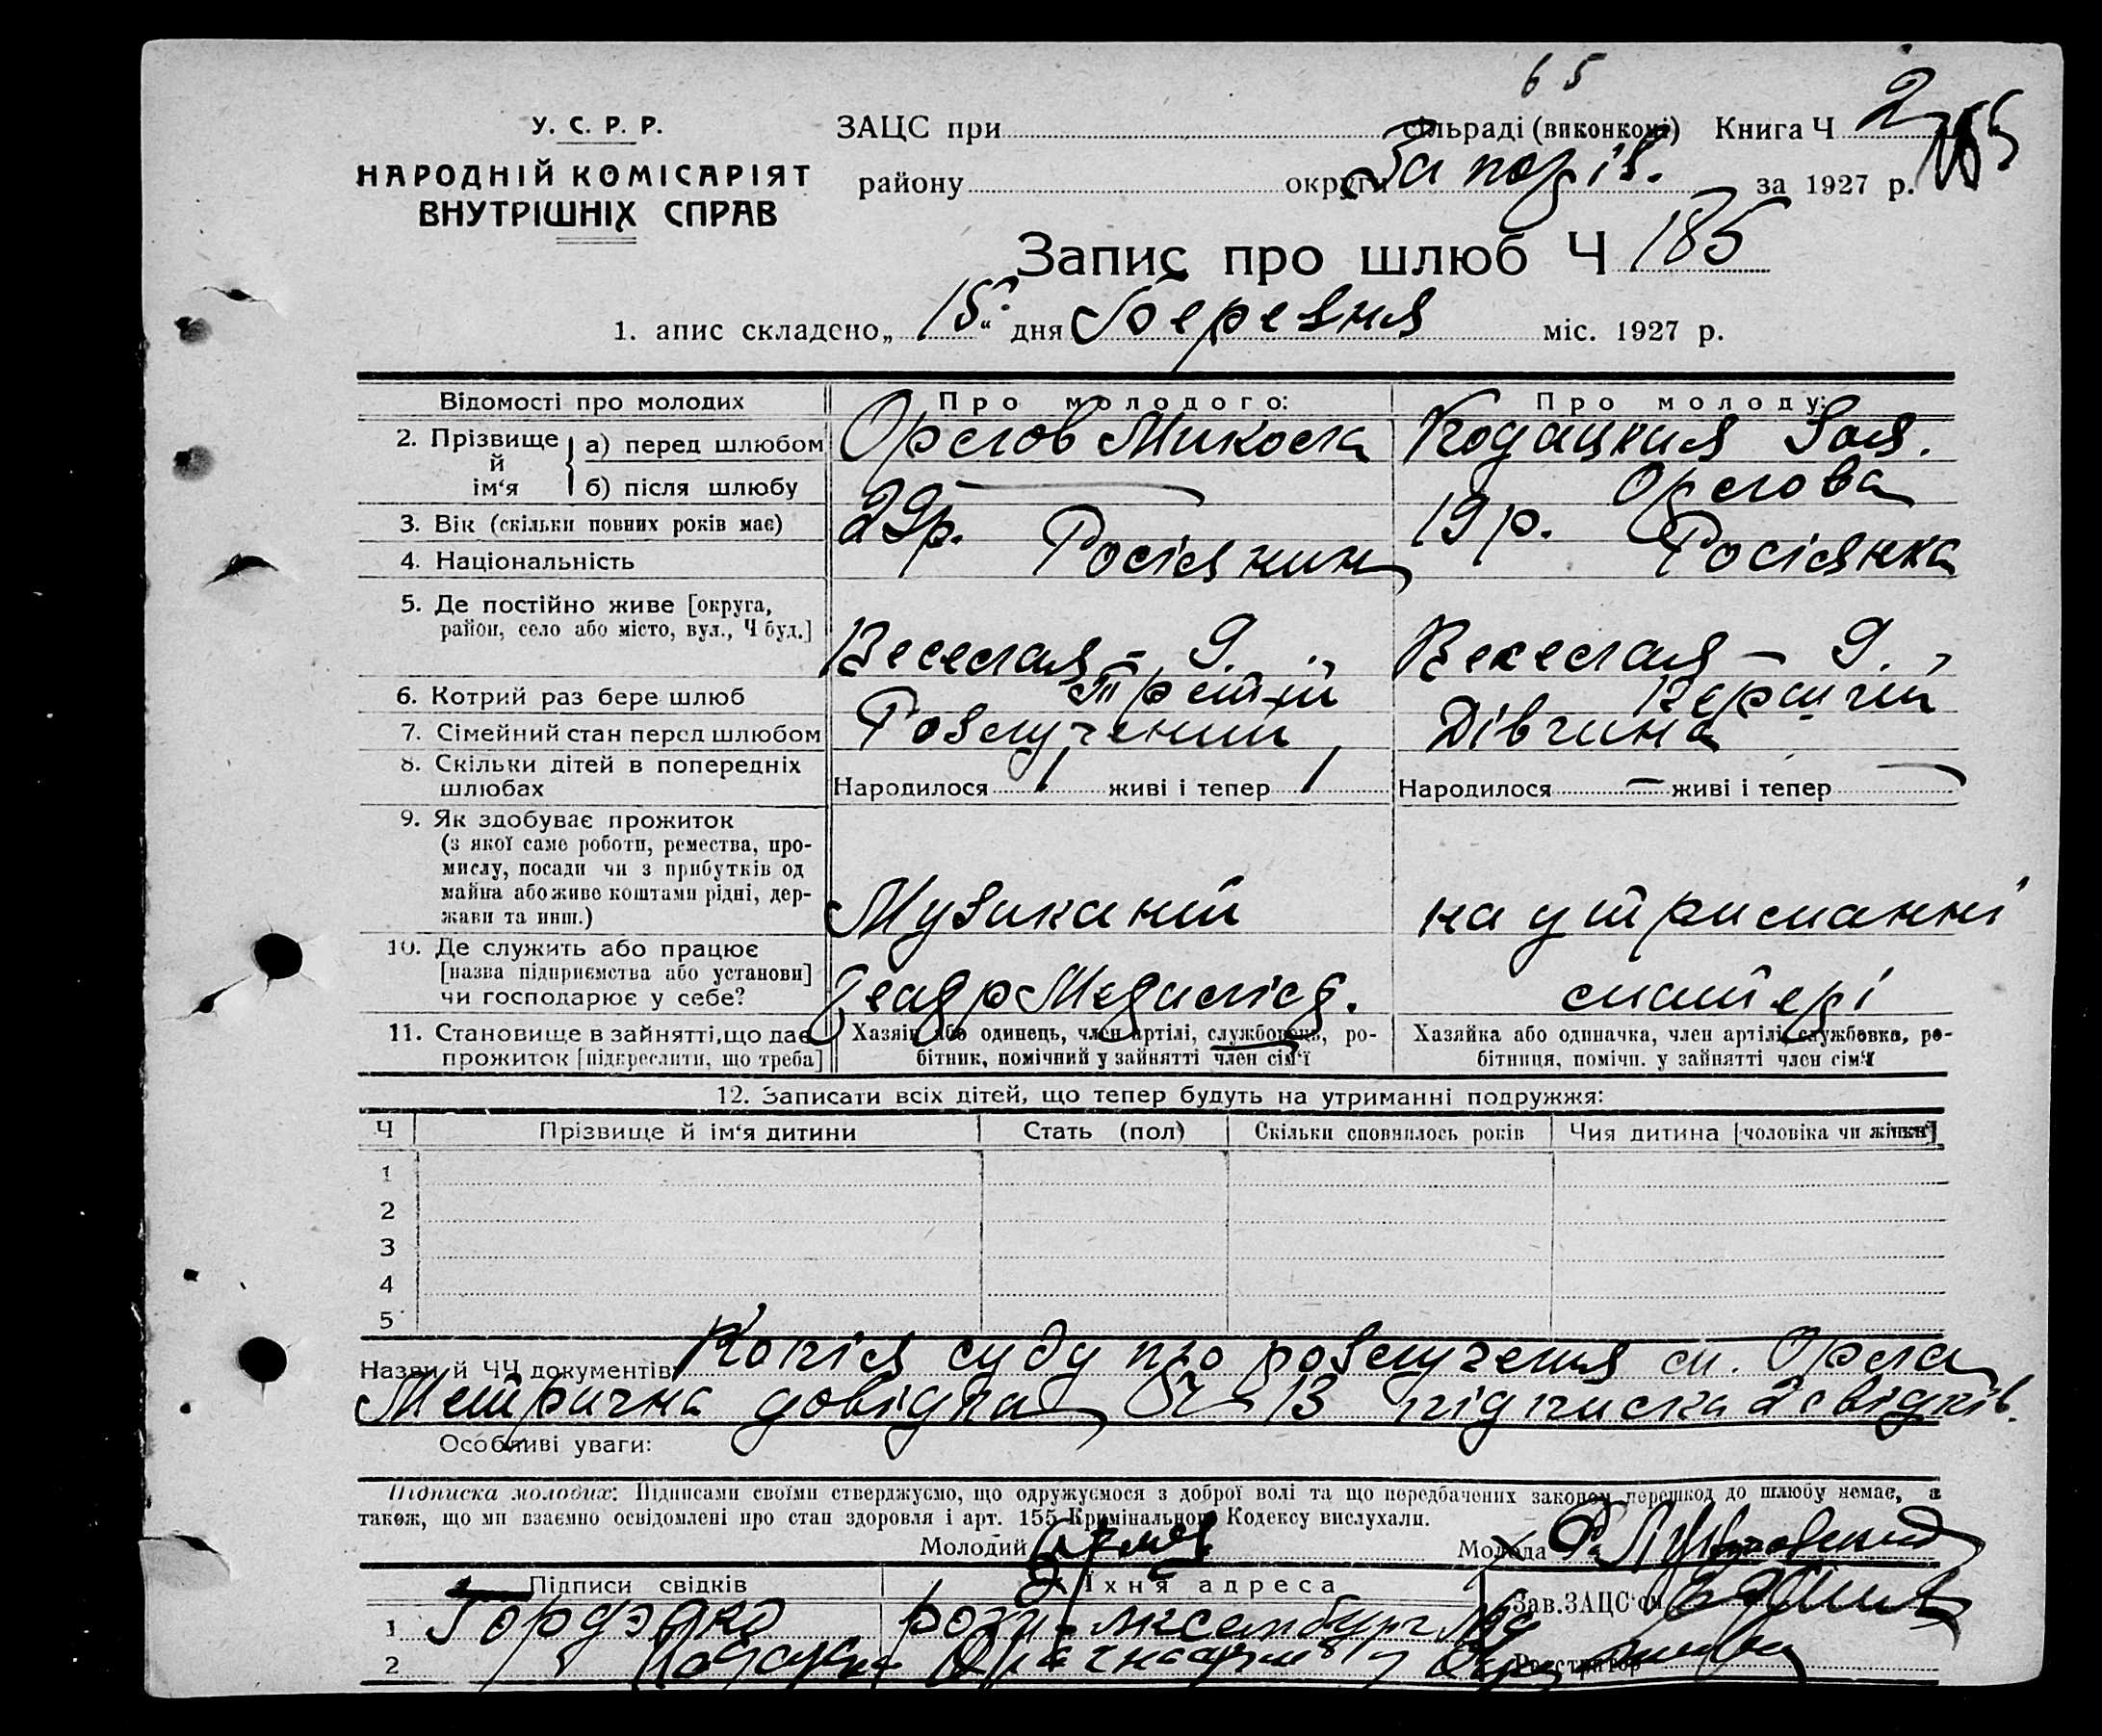 65
У. С. Р. Р.
НАРОДНІЙ КОМІСАРІЯТ
ВНУТРІШНІХ СПРАВ
ЗАЦС при сільраді (виконкомі) Книга Ч 2
району округи Запоріз. за 1927 р.
Запис про шлюб Ч 185
1. апис складено „15“ дня березня міс. 1927 р.
Відомості про молодих Про молодого: Про молоду:
2. Прізвище й ім‘я а) перед шлюбом Орлов Микола Кодацкия Зоя.
б) після шлюбу — Орлова
3. Вік (скільки повних років має) 29р. 19р.
4. Національність Росіянин Росіянка
5. Де постійно живе [округа,
район, село або місто, вул., Ч буд.] Веселая - 9. Веселая - 9.
6. Котрий раз бере шлюб Третій Перший
7. Сімейний стан перед шлюбом Розлучений Дівчина
8. Скільки дітей в попередніх
шлюбах Народилося 1 живі і тепер 1 Народилося — живі і тепер —
9. Як здобуває прожиток
(з якої саме роботи, ремества, про-
мислу, посади чи з прибутків од
майна або живе коштами рідні, дер-
жави та инш.) Музикант на утриманні
10. Де служить або працює
[назва підприємства або установи]
чи господарює у себе? матері
11. Становище в зайнятті, що дає
прожиток [підкреслити, що треба]
Хазяїн або одинець, член артілі, службовець, ро-
бітник, помічний у зайнятті член сім‘ї
Хазяйка або одиначка, член артілі, службовка, ро-
бітниця, помічн. у зайнятті член сім‘ї
12. Записати всіх дітей, що тепер будуть на утриманні подружжя:
Ч Прізвище й ім‘я дитини Стать (пол) Скільки сповнилось років Чия дитина [чоловіка чи жінки]
1
2
3
4
5
Назви й ЧЧ документів Копія суду про розлучення м. Орла
Метрична довідка 13 підписка 2 свідків.
Особливі уваги:
Підписка молодих: Підписами своїми стверджуємо, що одружуємося з доброї волі та що передбачених законом перешкод до шлюбу немає, а
також, що ми взаємно освідомлені про стан здоровля і арт. 155 Кримінального Кодексу вислухали.
Молодий Молода
Підписи свідків Їхня адреса Зав. ЗАЦС‘ом
1
2 Реєстратор